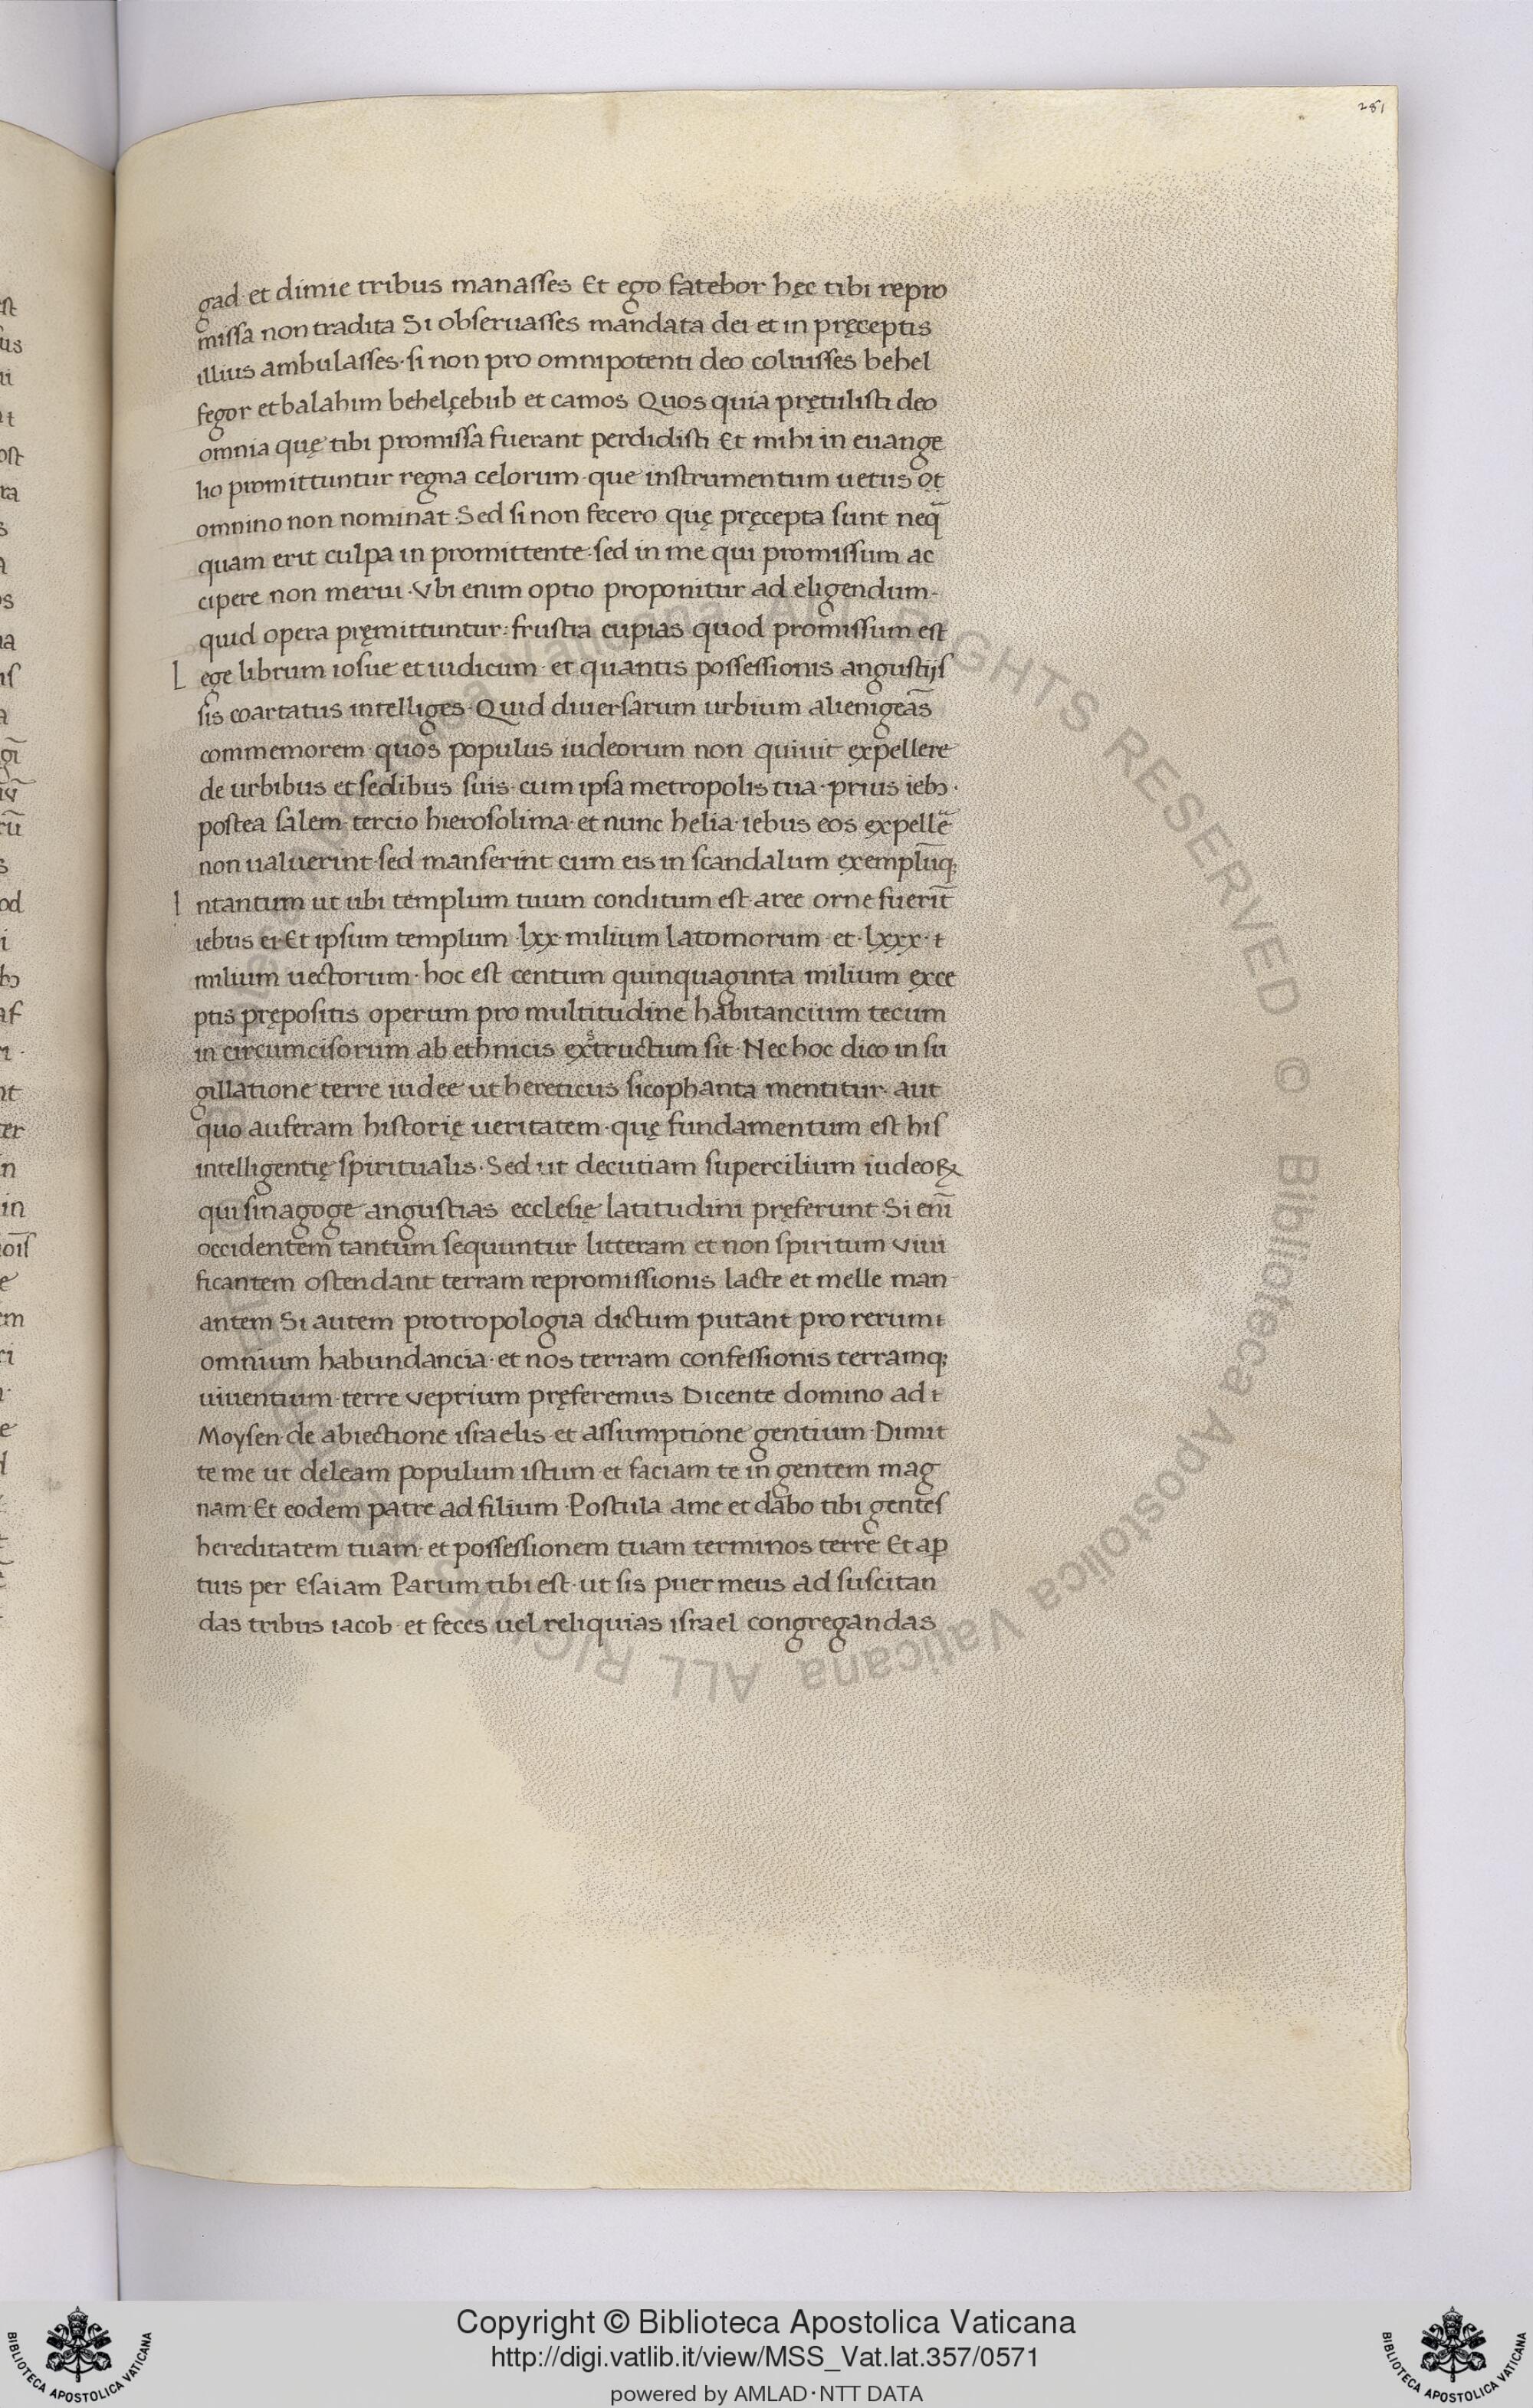 281
gad et dimie tribus manasses Et ego fatebor hęc tibi repro
missa non tradita Si obseruasses mandata dei et in pręceptis
illius ambulasses· si non pro omnipotenti deo coluisses behel
fegor et balahim behelçebub et camos Quos quia prętulisti deo
omnia quę tibi promissa fuerant perdidisti Et mihi in euange
lio promittuntur regna celorum· que instrumentum uetus
omnino non nominat· Sed si non fecero quę pręcepta sunt neq̄
quam erit culpa in promittente· sed in me qui promissum ac
cipere non merui· Vbi enim optio proponitur ad eligendum-
quid opera pręmittuntur: frustra cupias quod promissum est
Lege librum iosue et iudicum· et quantis possessionis angustijs
sis coartatus intelliges· Quid diuersarum urbium alienigeās
commemorem quos populus iudeorum non quiuit expellere
de urbibus et sedibus suis· cum ipsa metropolis tua· prius iebꝫ·
postea salem· tercio hierosolima· et nunc helia· iebus eos expellē
non ualuerint· sed manserint cum eis in scandalum exemplūq;
Intantum ut ubi templum tuum conditum est aree orne fuerīt
iebus ei· Et ipsum templum ·lxx· milium Latomorum· et ·lxxx· t
milium uectorum· hoc est centum quinquaginta milium exce
ptis prępositis operum pro multitudine habitancium tecum
in circumcisorum ab ethnicis exstructum sit· Nec hoc dico in su
gillatione terre iudee ut hereticus sicophanta mentitur· aut
quo auferam historię ueritatem· quę fundamentum est his
intelligentię spiritualis· Sed ut decutiam supercilium iudeoꝝ
qui sinagoge angustias ecclesię latitudini pręferunt Si enī
occidentem tantum sequuntur litteram et non spiritum viui
ficantem ostendant terram repromissionis lacte et melle man
antem Si autem pro tropologia dictum putant pro rerum t
omnium habundancia· et nos terram confessionis terramq;
uiuentium· terre veprium pręferemus Dicente domino ad t
Moysen de abiectione israelis et assumptione gentium· Dimit
te me ut deleam populum istum et faciam te in gentem mag
nam· Et eodem patre ad filium· Postula a me et dabo tibi gentes
hereditatem tuam· et possessionem tuam terminos terre Et aꝑ
tius per Esaiam Parum tibi est· ut sis puer meus ad suscitan
das tribus iacob· et feces uel reliquias israel congregandas
Copyright © Biblioteca Apostolica Vaticana
http://digi.vatlib.it/view/MSS_Vat.lat.357/0571
powered by AMLAD·NTT DATA